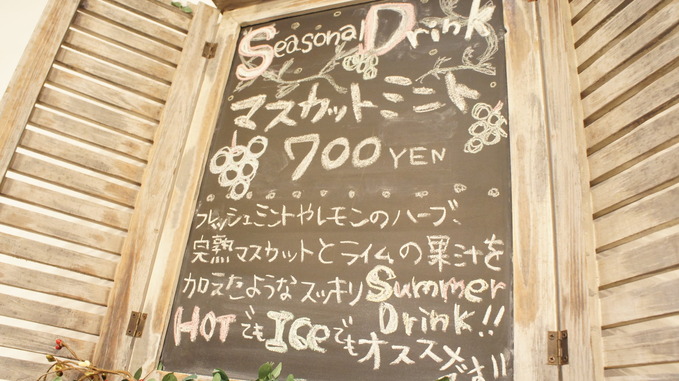 Seasonal Drink
マスカットミント
700 YEN
フレッシュミントやレモンのハーブ、
完熟マスカットとライムの果汁を
加えたようなスッキリ Summer
Drink!!
HOTでもICEでもオススメです!!